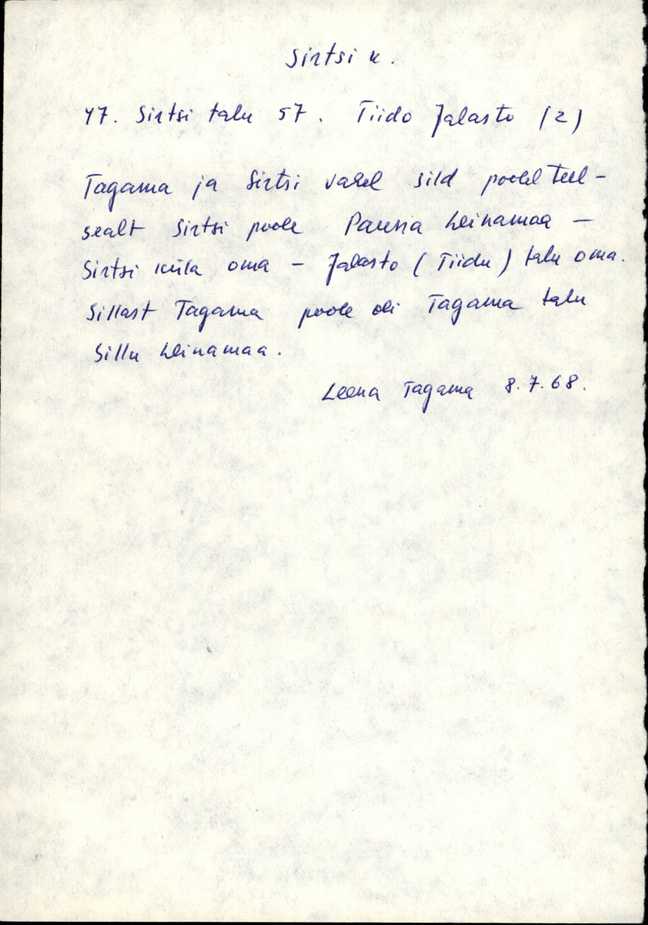 Sirtsi k.
47. Sirtsi talu 57. Tiido Jalasto (2)
Tagama ja Sirtsi vahel sild poolel teel -
sealt Sirtsi poole Panna heinamaa -
Sirtsi küla oma - Jalasto (Tiidu) talu oma.
Sillast Tagama poole oli Tagama talu
Sillu heinamaa.
Leena Tagama 8.7.68.